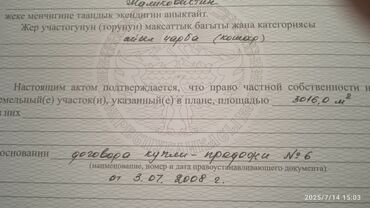 жеке менчигине таандык экендигин аныктайт.
Жер участогунун (торунун) максаттык багыты жана категориясы
айыл чарба (кошар)
Настоящим актом подтверждается, что право частной собственности и
земельный(е) участок(и), указанный(е) в плане, площадью 3016,0 м²
в них
основании договора купли-продажи № 6
(наименование, номер и дата правоустанавливающего документа)
от 3.07.2008 г.
2025/7/14 15:03